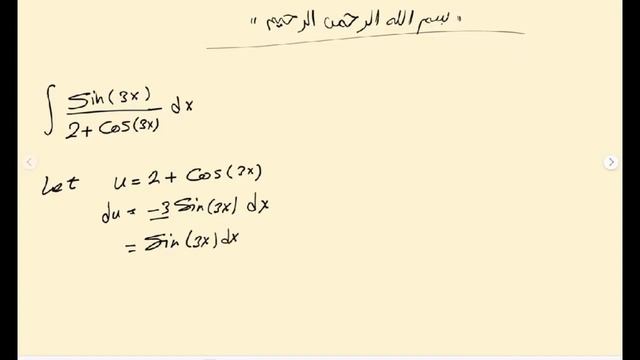 "بسم الله الرحمن الرحيم"
∫ Sin(3x) / 2 + Cos(3x) dx
Let u = 2 + Cos(3x)
du = -3 Sin(3x) dx
= Sin(3x) dx